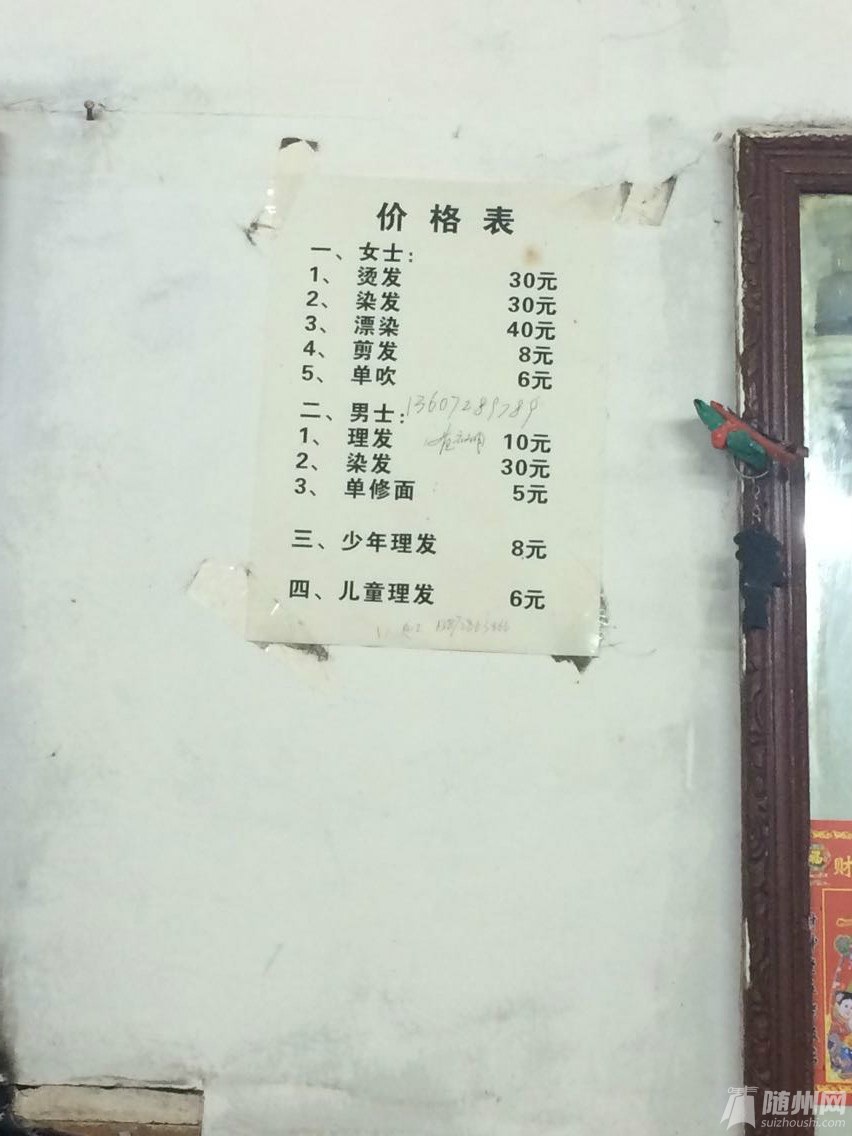 价格表
一、女士：
1、烫发 30元
2、染发 30元
3、漂染 40元
4、剪发 8元
5、单吹 6元
二、男士： 13607289789
1、理发 10元
2、染发 30元
3、单修面 5元
三、少年理发 8元
四、儿童理发 6元
财
随州网
suizhoushi.com